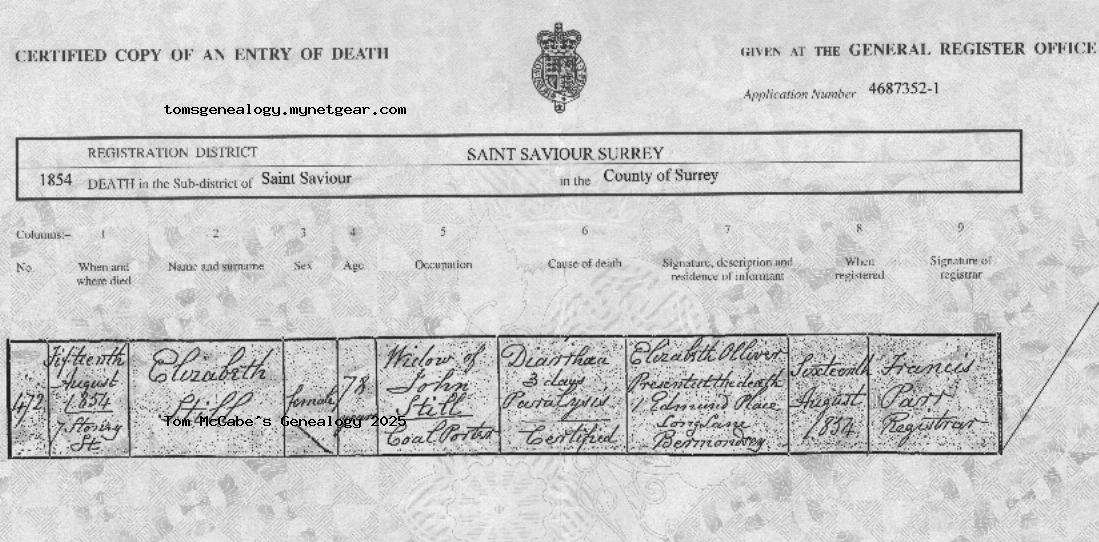 CERTIFIED COPY OF AN ENTRY OF DEATH
GIVEN AT THE GENERAL REGISTER OFFICE
Application Number 4687352-1
tomsgenealogy.mynetgear.com
REGISTRATION DISTRICT SAINT SAVIOUR SURREY
1854 DEATH in the Sub-district of Saint Saviour in the County of Surrey
Columns:- 1 2 3 4 5 6 7 8 9
No. When and where died Name and surname Sex Age Occupation Cause of death Signature, description and residence of informant When registered Signature of registrar
472
Fifteenth
August
1854
7 Stoney
St
Elizabeth
Still
female
78
years
Widow of
John
Still
Coal Porter
Diarrhaea
3 days
Paralysis
Certified
Elizabeth Olliver
Present at the death
1 Edmund Place
Long Lane
Bermondsey
Sixteenth
August
1854
Francis
Parr
Registrar
Tom McCabe's Genealogy 2025